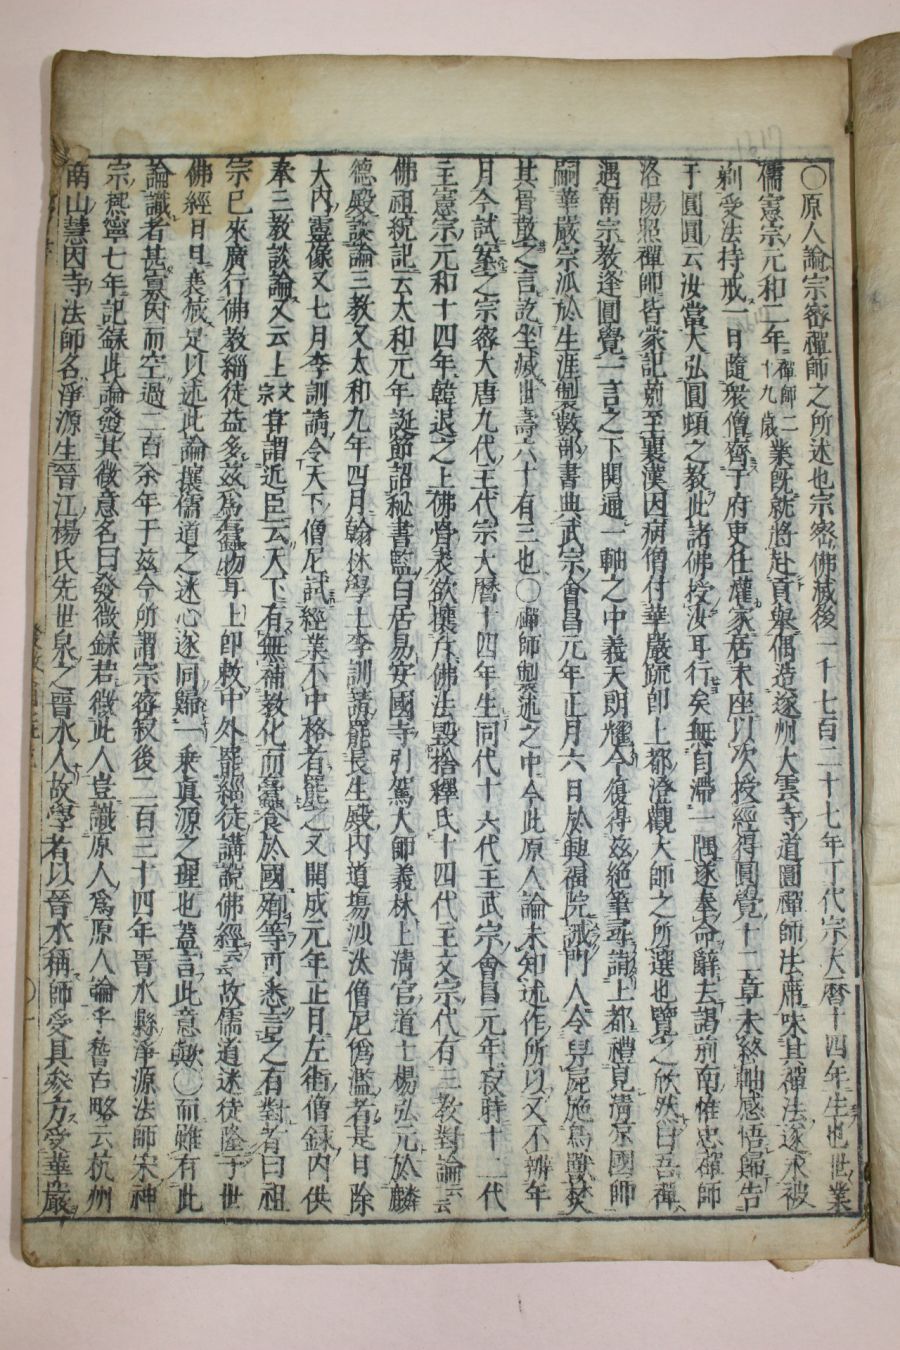 〇原人論宗密禪師之所述也宗密佛滅後一千七百二十七年丁代宗大曆十四年生也世業
儒憲宗元和二年禪師二十九歲業既就將赴貢舉偶造遂州大雲寺道圓禪師法席味其禪法遂求被
剃受法持戒一日隨衆僧齋于府吏任灌家居末座以次授經得圓覺十二章未終軸感悟歸告
于圓圓云汝當大弘圓頓之教此諸佛授汝耳行矣無自滯一隅遂奉命辭去謁荊南惟忠禪師
洛陽照禪師皆蒙記莂至襄漢因病僧付華嚴疏即上都澄觀大師之所選也覽之欣然曰吾禪
遇南宗教逢圓覺一言之下開通一軸之中義天朗耀今復得茲絕筆尋請上都禮見淸凉國師
嗣華嚴宗派於生涯製數部書典武宗會昌元年正月六日於興福院誡門人令舁屍施鳥獸焚
其骨散之言訖坐滅世壽六十有三也〇禪師製述之中今此原人論未知述作所以又不辨年
月今試案之宗密大唐九代王代宗大曆十四年生同代十六代王武宗會昌元年寂時十二代
主憲宗元和十四年韓退之上佛骨表欲壞斥佛法毀捨釋氏十四代王文宗代有三教對論云云
佛祖統記云太和元年誕節詔秘書監白居易安國寺引駕大師義林上淸宮道士楊弘元於麟
德殿談論三教又太和九年四月翰林學士李訓請罷長生殿內道場沙汰僧尼僞濫者是日除
大內靈像又七月李訓請令天下僧尼試經業不中格者罷之又開成元年正月左街僧錄內供
奉三教談論又云上文宗甞謂近臣云天下有無補教化而蠹食於國
宗已來廣行佛教緇徒益多茲爲蠹物耳上即敕中外罷緇徒講說佛經云云故儒道迷徒隆于世
佛經日日衰敁是以述此論攘儒道之迷心逐同歸一乘眞源之理也蓋言此意歟〇而雖有此
論識者甚寡因而空過二百余年于茲今所謂宗密寂後二百三十四年晋水縣淨源法師宋神
宗熙寧七年記錄此論發其微意名曰發微錄若微此人豈識原人爲原人論乎稽古略云杭州
南山慧因寺法師名淨源生晋江楊氏先世泉之晋水人故學者以晋水稱師受具參方受華嚴